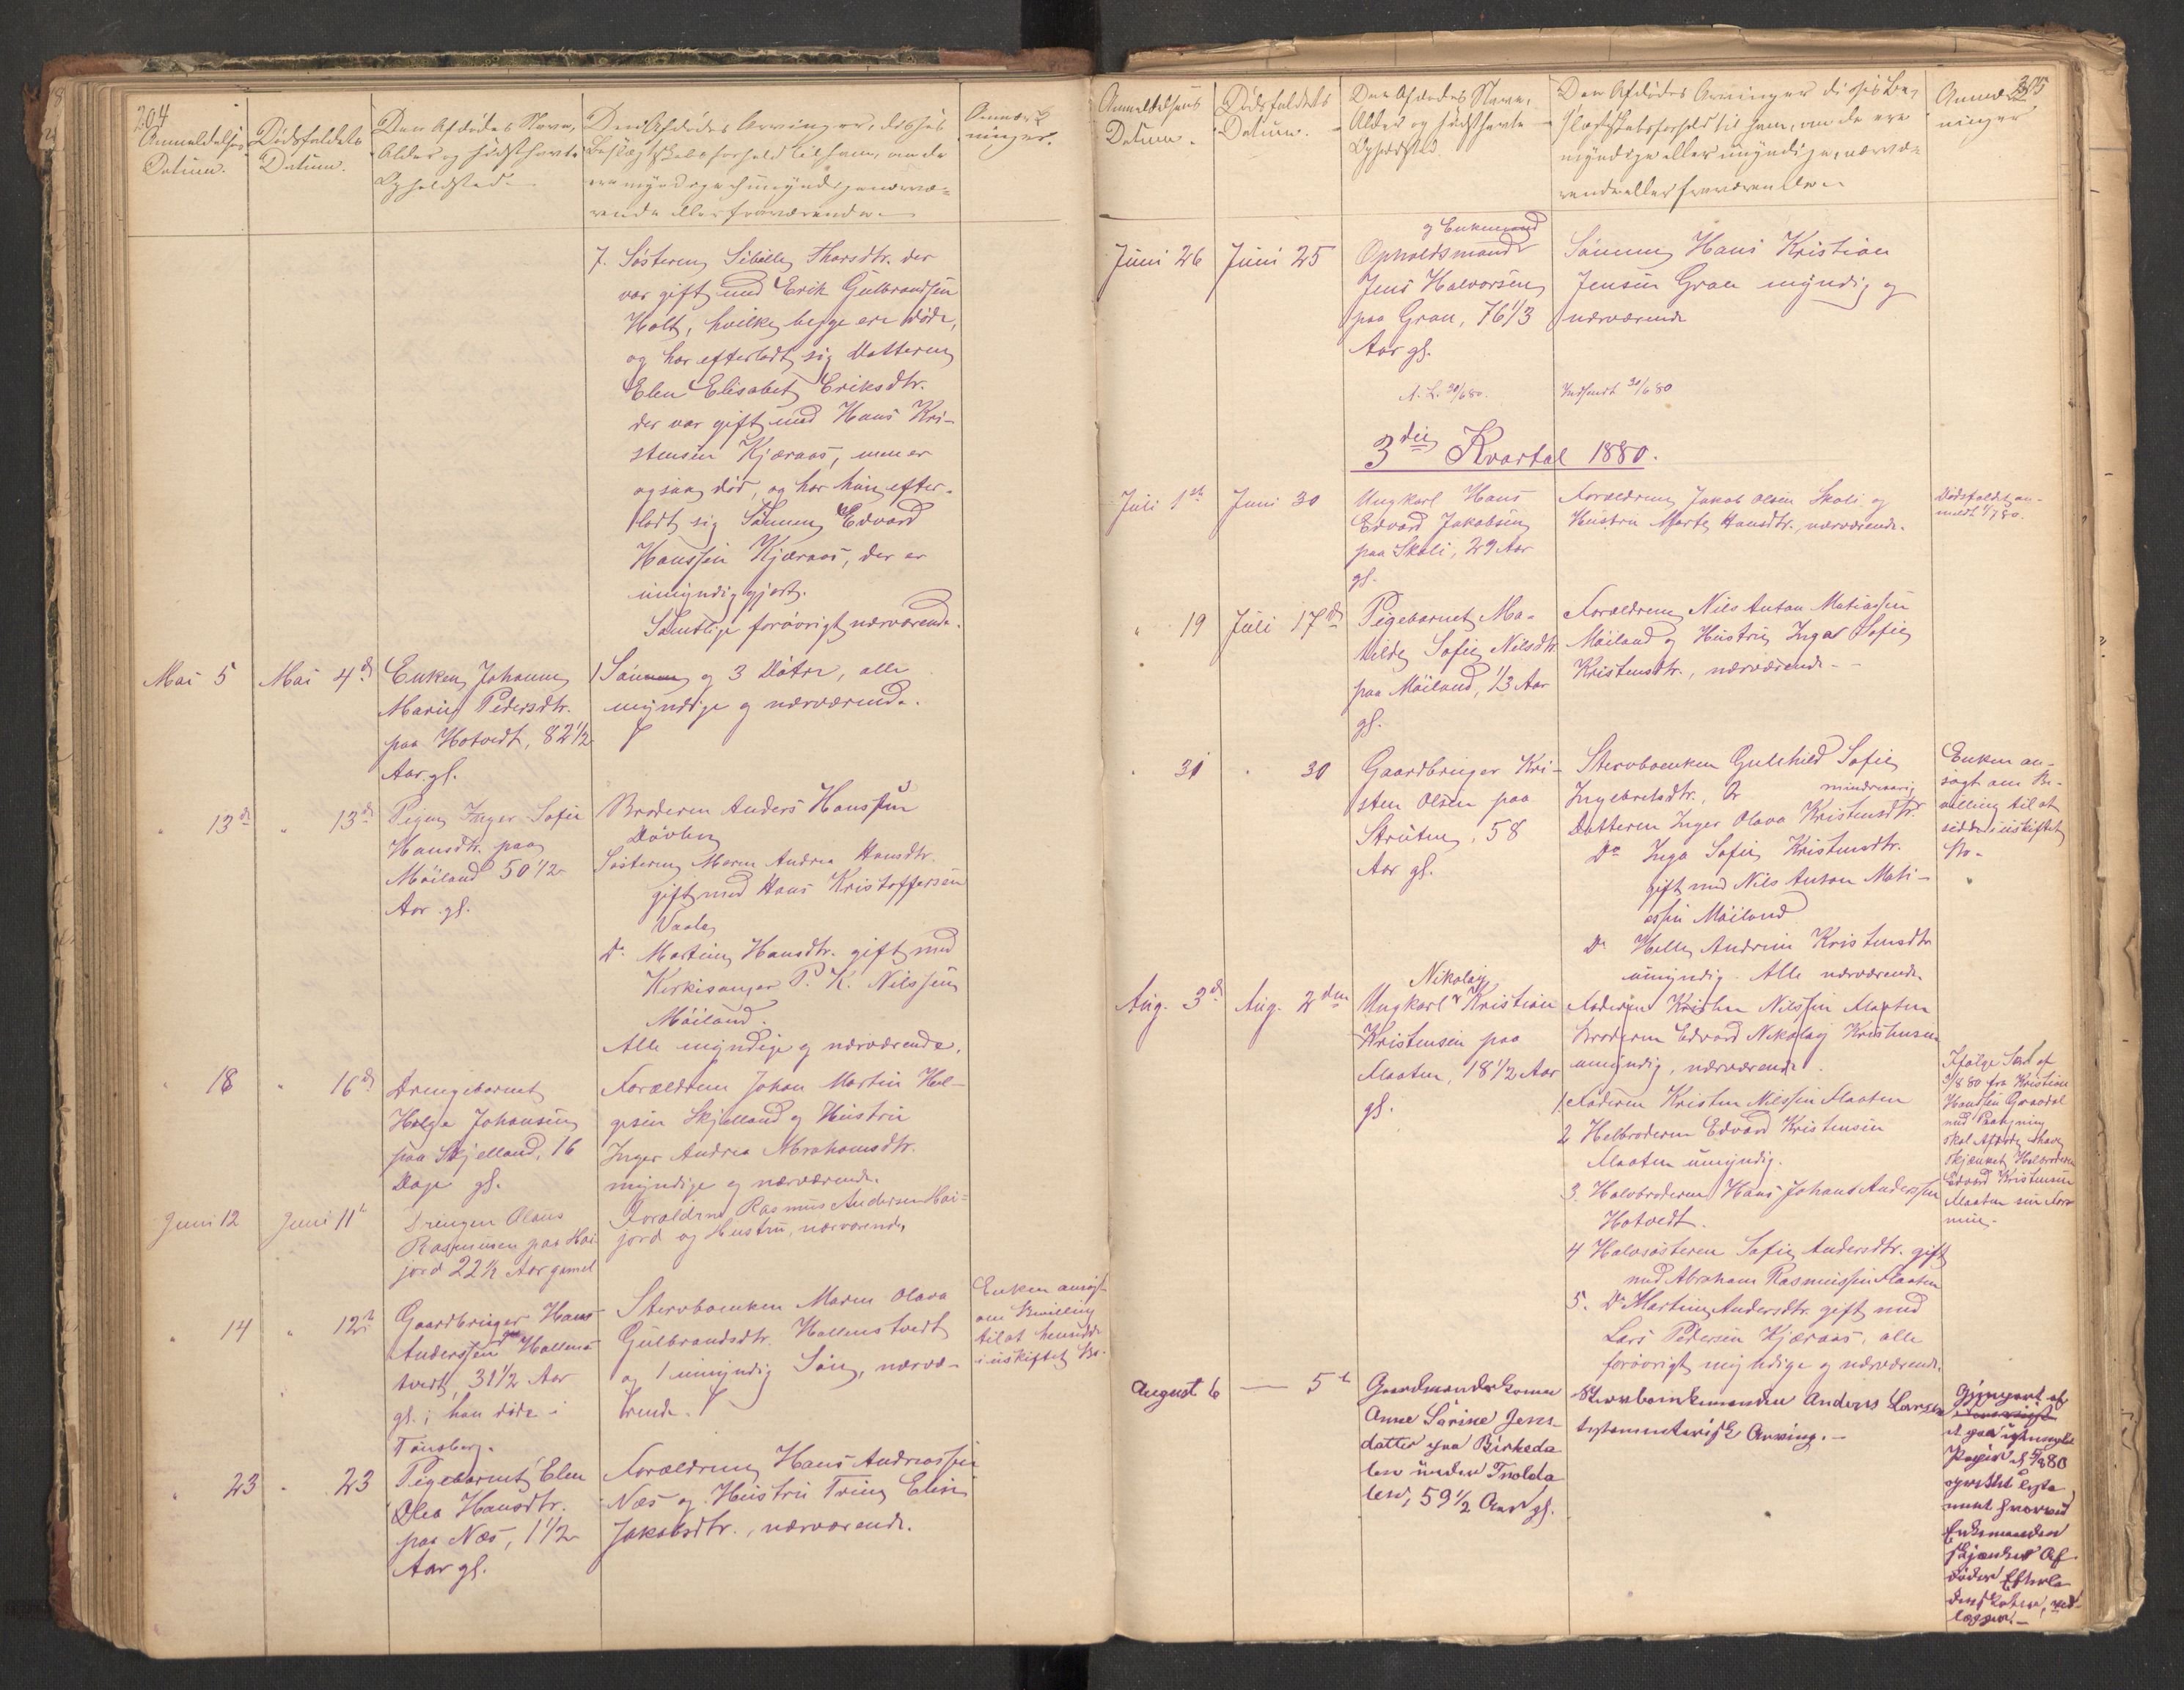 204
Anmeldelsens
Datum.
Dødsfaldets
Datum.
Den Afdødes Navn,
Alder og sidsthavte
Opholdsted.
Den Afdødes Arvinger, disses
Beslægtskabsforhold til ham, om de
ere myndige eller umyndige, nærvæ-
rende eller fraværende.
Anmærk-
ninger.
7. Søsteren Sibille Thorsdtr. der
var gift med Erik Gulbrandsen
Holt, hvilke begge ere døde,
og har efterladt sig Datteren
Elen Elisabet Eriksdtr.
der var gift med Hans Kri-
stensen Kjæraas, men er
ogsaa død, og har hun efter-
ladt sig Sønnen Edvard
Hanssen Kjæraas, der er
umyndiggjort.
Samtlige forøvrigt nærværende.
Mai 5 Mai 4d
Enken Johanne
Marie Pedersdtr.
paa Hotvedt, 82 1/2
Aar gl.
1 Søn og 3 Døtre, alle
myndige og nærværende.
" 13de " 13de
Pigen Inger Sofie
Hansdtr. paa
Møiland 50 1/2
Aar gl.
Broderen Anders Hanssen
Døvlen
Søsteren Maren Andrea Hansdtr.
gift med Hans Kristoffersen
Vaale
Do Martine Hansdtr. gift med
Kirkesanger P. K. Nilssen
Møiland.
Alle myndige og nærværende.
" 18 " 16d
Drengebarnet
Helge Johansen
paa Skjelland, 16
Dage gl.
Forældrene Johan Martin Hel-
gesen Skjelland og Hustru
Inger Andrea Abrahamsdtr.
myndige og nærværende.
Juni 12 Juni 11t
Drengen Olaus
Rasmussen paa Hai-
jord 22 1/2 Aar gamel
Foraldrne Rasmus Andersen Hai-
jord og Hustru, nærværende
" 14 " 12te
Gaardbruger Hans
Anderssen paa Hallens-
tvedt, 31 1/2 Aar
gl.; han døde i
Tønsberg.
Stervboenken Maren Olava
Gulbrandsdtr. Hallenstvedt
og 1 umyndig Søn, nærvæ-
rende.
Enken ansøgt
om Bevilling
til at hensidde
i uskiftet Bo.
" 23 " 23
Pigebarnet Elen
Olea Hansdtr.
paa Næs, 1 1/2
Aar gl.
Forældrene Hans Andreassen
Næs og Hustru Trine Elise
Jakobsdtr., nærværende.
305
Anmeldelsens
Datum.
Dødsfaldets
Datum.
Den Afdødes Navn,
Alder og sidsthavte
Opholdsted
Den Afdødes Arvinger disses Be-
slægtskabsforhold til ham, om de ere
myndige eller umyndige, nærvæ-
rende eller fraværende.
Anmærk-
ninger
Juni 26 Juni 25
og Enkemand
Opholdsmand
Jens Halvorsen
paa Gran, 76 1/3
Aar gl.
Sønnen Hans Kristian
Jensen Gran myndig og
nærværende
A. L. 30/6 80.
Indsendt 30/6 80
3die Kvartal 1880.
Juli 1ste Juni 30
Ungkarl Hans
Edvard Jakobsen
paa Skoli, 29 Aar
gl.
Forældrene Jakob Olsen Skoli og
Hustru Marte Hansdtr., nærværende.
Dødsfaldet an-
meldt 1/7 80.
" 19 Juli 17de
Pigebarnet Ma-
tilde Sofie Nilsdtr.
paa Møiland, 1/3 Aar
gl.
Forældrene Nils Anton Matiassen
Møiland og Hustru Inga Sofie
Kristensdtr., nærværende.
" 31 " 30
Gaardbruger Kri-
sten Olsen paa
Struten, 58
Aar gl.
Stervboenken Gulehild Sofie
Ingebretsdtr., &
mindreaarig
Datteren Inger Olava Kristensdtr.
Do Inga Sofie Kristensdtr.
gift med Nils Anton Mati-
assen Møiland
Do Helle Andrine Kristensdtr
umyndig. Alle nærværende
Enken an-
søgt om Be-
villing til at
sidde i uskiftet
Bo.
Aug. 3d Aug. 2den
Nikolay
Ungkarl Kristian
Kristensen paa
Flaaten, 18 1/2 Aar
gl.
Faderen Kristen Nilssen Flaaten
Broderen Edvard Nikolay Kristensen
umyndig, nærværende.
1 Faderen Kristen Nilssen Flaaten
2 Helbroderen Edvard Kristensen
Flaaten umyndig.
3. Halvbroderen Hans Johans Anderssen
Hotvedt.
4 Halvsøsteren Sofie Andersdtr. gift
med Abraham Rasmussen Flaaten
5. Do Martine Andersdtr. gift med
Lars Pedersen Kjæraas, alle
forøvrigt myndige og nærværende.
Ifølge af
3/8 80 fra Kristian
Hanssen
med Paategning
skal Afdøde have
skjænket Halvbroderen
Edvard Kristensen
Flaaten sin For-
mue.
August 6 — 5te
Gaardmandskonen
Anne Sørine Jens-
datter paa Birkeda
len under Trolda
len, 59 1/2 Aar gl.
Stervboenkemanden Anders Larsen
testamentarisk Arving.
Gjenpart af
et paa ustemplet
Papir d. 5/8 80
oprettet Testa
ment hvorved
Enkemanden
skjænkes Af-
dødes Efterla
denskaber, ved-
lægges.